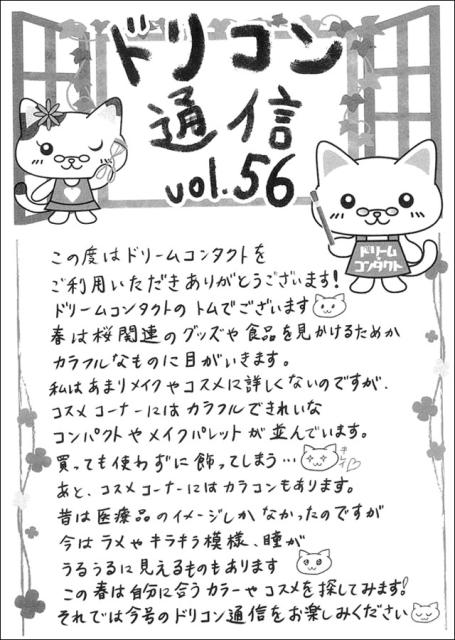 ドリコン
通信
vol.56
ドリーム
コンタクト
この度はドリームコンタクトを
ご利用いただきありがとうございます!
ドリームコンタクトのトムでございます
春は桜関連のグッズや食品を見かけるためか
カラフルなものに目がいきます。
私はあまりメイクやコスメに詳しくないのですが、
コスメコーナーにはカラフルできれいな
コンパクトやメイクパレットが並んでいます。
買っても使わずに飾ってしまう…
キレイ
あと、コスメコーナーにはカラコンもあります。
昔は医療品のイメージしかなかったのですが
今はラメやキラキラ模様、瞳が
うるうるに見えるものもあります
この春は自分に合うカラーやコスメを探してみます!
それでは今号のドリコン通信をお楽しみください